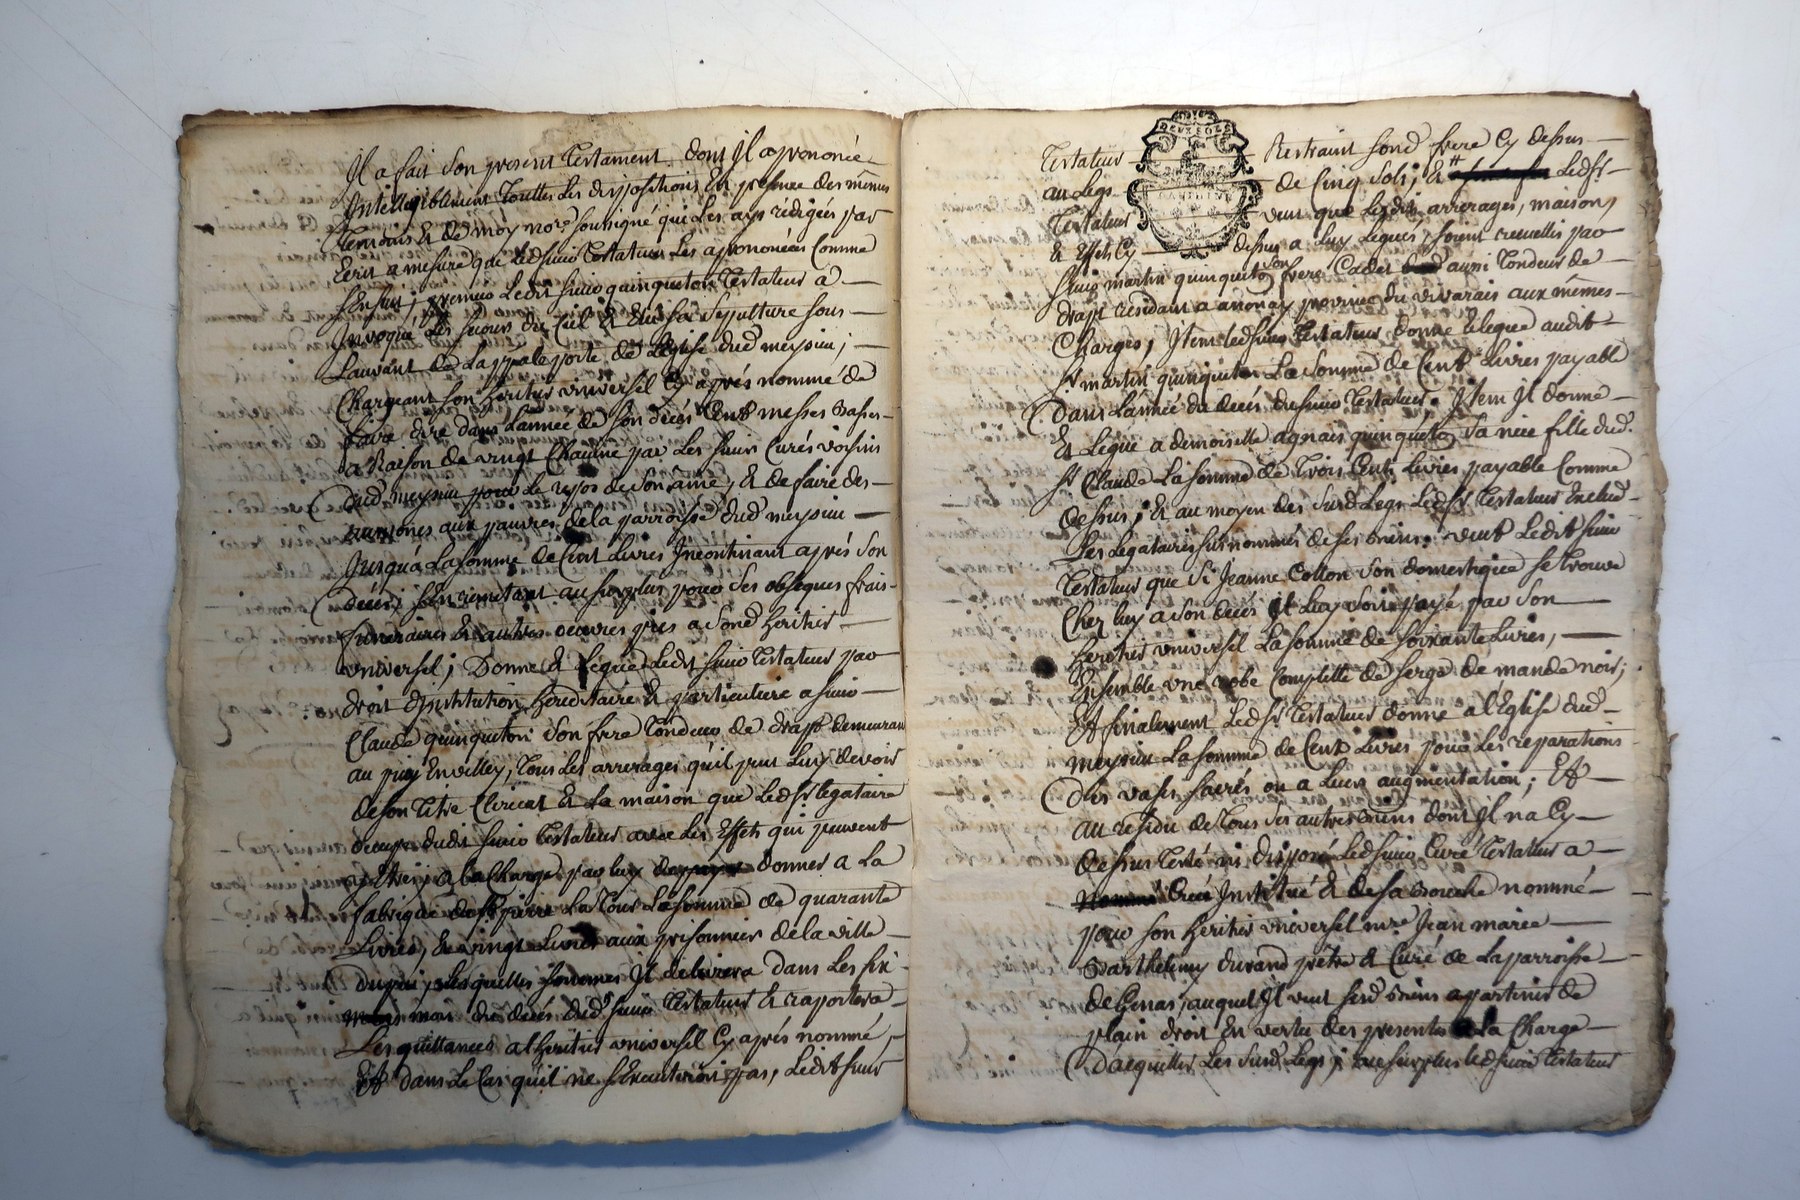 Il a fait son present Testament dont Il a prononcé
Intelligiblement Touttes Les dispositions En presence des mêmes
Temoins & de moy no.re soussigné qui Les ay rédigées par
Ecrit a mesure que ledsieur Testateur Les a prononcées Comme
s'Ensuit; premier Ledit sieur quinqueton Testateur a
Invoqué Les secours du Ciel & Elu sa sepulture sous
Lauvant de La ppale porte de l'Eglise dud meysieu;
Chargeant son heritier vniversel Cy après nommé de
faire dire dans L'année de son décés Cent messes Basses
a Raison de vingt Chacune par Les sieurs Curés voisins
dud meysieu pour Le repos de son ame, & de faire des
aumônes aux pauvres de la parroisse dud meysieu
Jusqu'a La somme de Cent Livres Incontinant après son
décés, s'En remettant au surplus pour ses obseques frais
funeraires & autres oeuvres pies a sond heritier
vniversel; Donne & Legue Ledit sieur Testateur par
droit d'Institution hereditaire & particuliere a sieur
Claude quinqueton son frere Tondeur de draps demeurant
au puy En velley, Tous Les arrerages qu'il peut Luy devoir
de son Titre Clerical & La maison que Ledsr legataire
occupe dudit sieur Testateur avec Les Effets qui peuvent
y Etre, a la Charge par luy donner a La
fabrique de St pierre La Tour La somme de quarante
Livres, & vingt Livres aux prisonniers de la ville
du puy, Lesquelles sommes Il delivrera dans Les six
mois du décés dud sieur Testateur & raportera
Les quittances a l'heritier vniversel Cy après nommé,
Et dans Le Cas qu'il ne s'Executeroit pas, Ledit sieur
DEUX SOLS
Testateur Restraint sond frere Cy dessus
au Legs de Cinq sols; & Ledsr
Testateur veut que Lesdits arrerages, maison,
& Effets Cy dessus a Luy Légués, soient recueillis par
sieur martin quinqueton son frere Cadet aussi Tondeur de
draps residant a anonay province du vivarais aux mêmes
Charges; Item ledsieur Testateur donne & legue audit
sr martin quinqueton La somme de Cent Livres payable
dans L'année du décés dusieur Testateur. Item Il donne
& Legue a demoiselle agnais quinqueton sa niéce fille dud.
sr Claude La somme de Trois Cents livres payable Comme
dessus; & au moyen des susd Legs Ledsr Testateur Exclud
Les Legataires susnommés de ses biens. veut Ledit sieur
Testateur que si Jeanne Collon son domestique se trouve
Chez luy a son décés Il Luy soit payé par son
heritier vniversel La somme de soixante Livres,
Ensemble vne robe Complette de serge de mande noir;
Et finalement Ledsr Testateur donne a l'Eglise dud
meysieu La somme de Cent Livres pour Les réparations
des vases sacrés ou a Leur augmentation; Et
au residu de Tous ses autres biens dont Il n'a Cy
dessus Testé ni disposé Ledsieur Curé Testateur a
Creé Institué & de sa Bouche nommé
pour son heritier vniversel mre Jean marie
Barthelemy durand prêtre & Curé de La parroisse
de Genas, auquel Il veut sesd biens apartenir de
plain droit En vertu des presentes a La Charge
D'acquitter Les susd. Legs; au surplus ledsieur Testateur